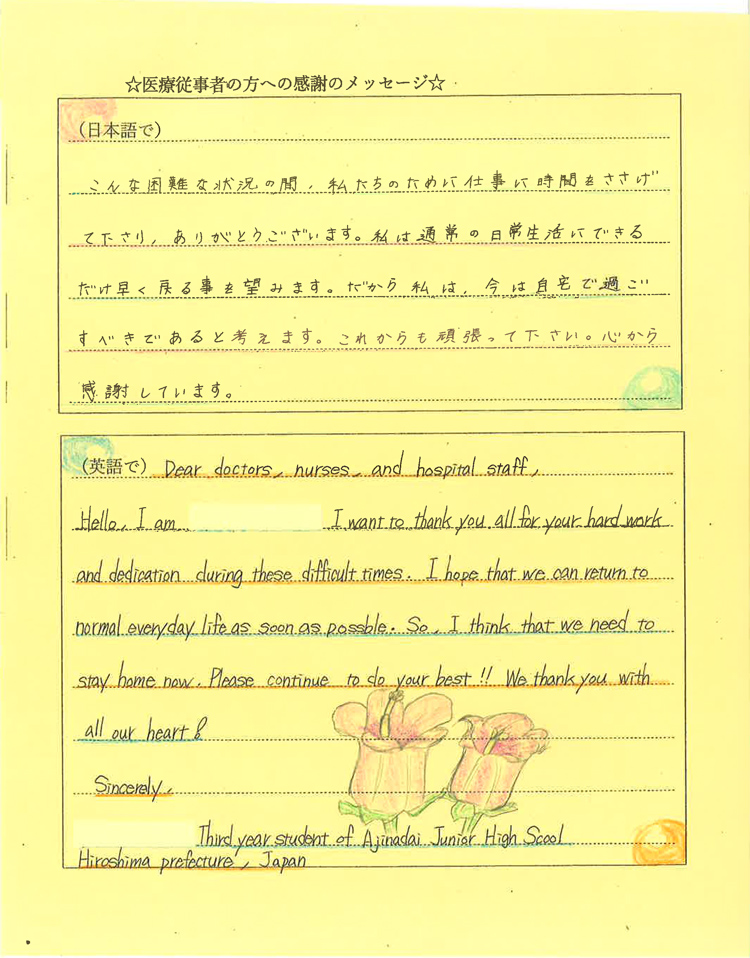 ☆医療従事者の方への感謝のメッセージ☆
（日本語で）
こんな困難な状況の間、私たちのために仕事に時間をささげ
て下さり、ありがとうございます。私は通常の日常生活にできる
だけ早く戻る事を望みます。だから私は、今は自宅で過ご
すべきであると考えます。これからも頑張って下さい。心から
感謝しています。
（英語で） Dear doctors, nurses, and hospital staff,
Hello, I am I want to thank you all for your hard work
and dedication during these difficult times. I hope that we can return to
normal everyday life as soon as possble. So, I think that we need to
stay home now. Please continue to do your best !! We thank you with
all our heart!
Sincerely,
Third year student of Ajinadai Junior High Scool
Hiroshima prefecture, Japan